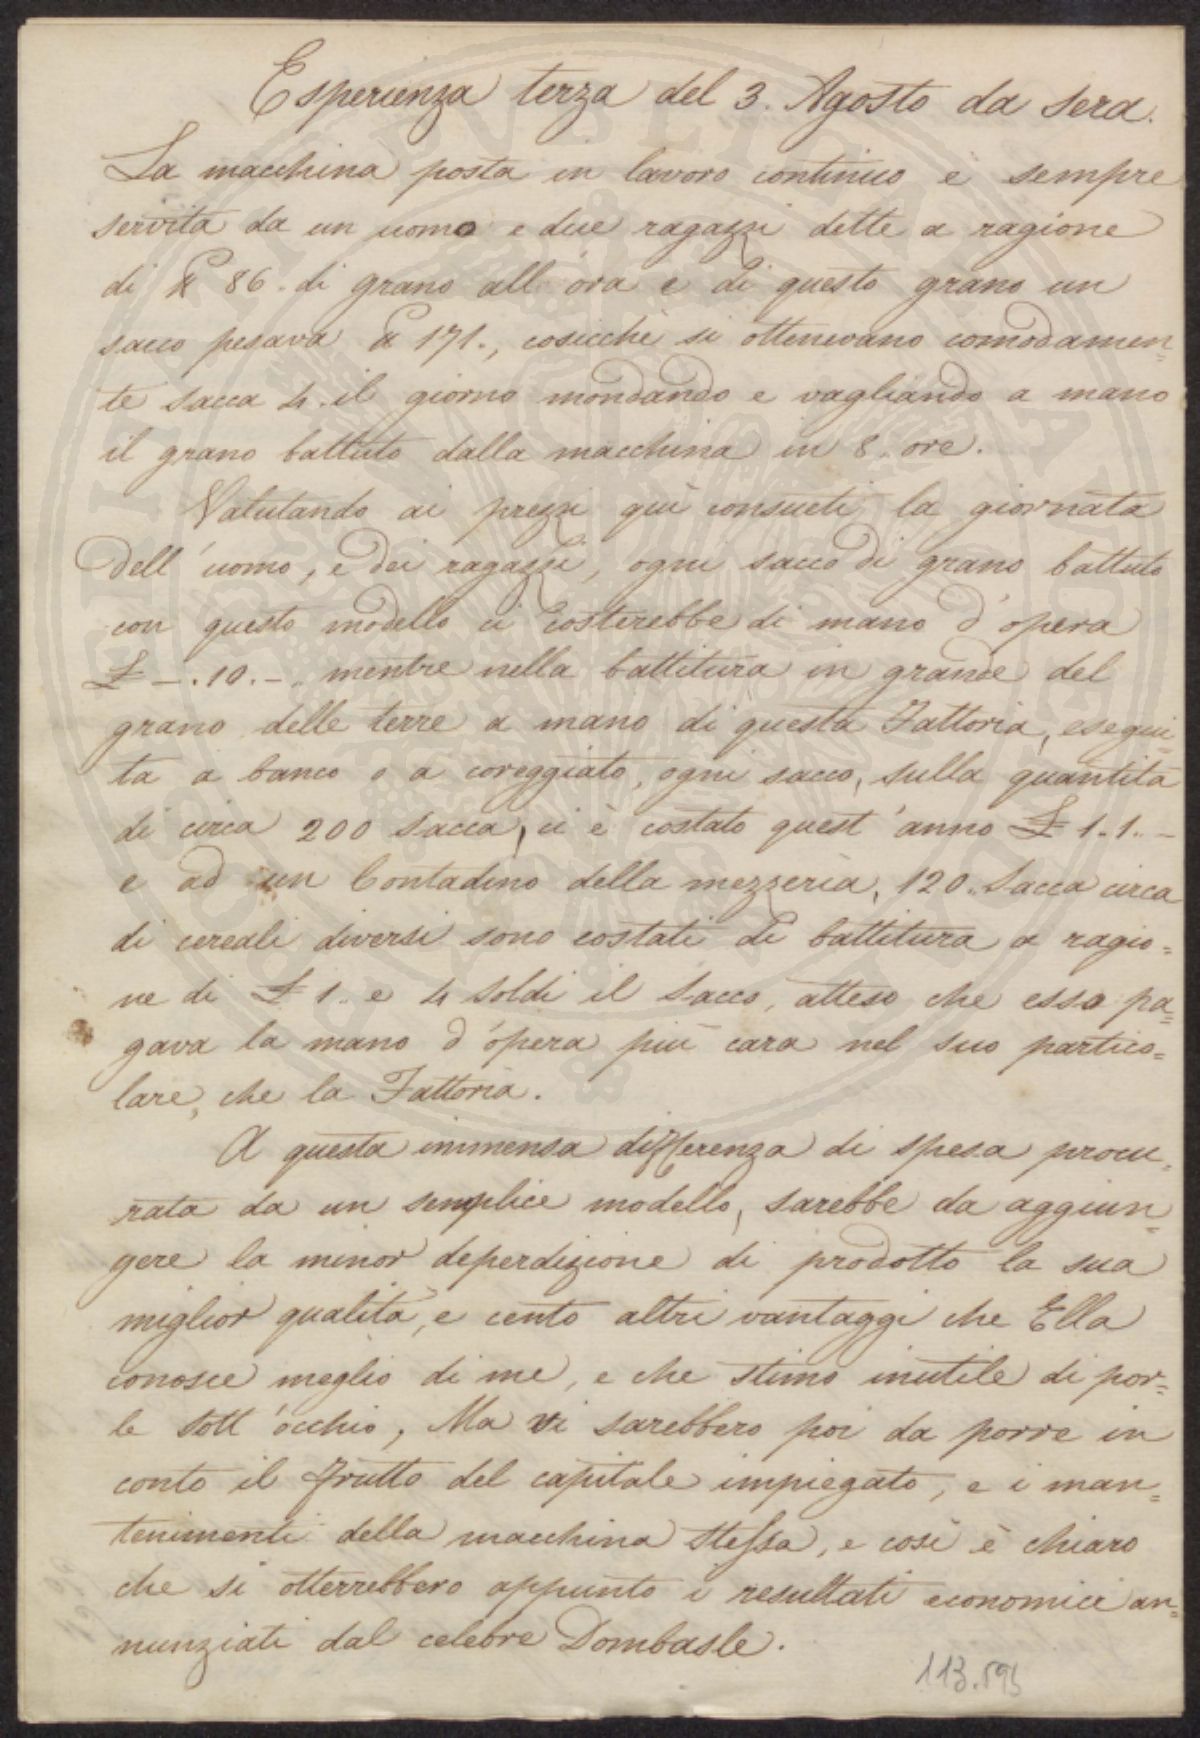 Esperienza terza del 3. Agosto da sera.
La macchina posta in lavoro continuo e sempre
servita da un uomo e due ragazzi dette a ragione
di ℔ 86. di grano all'ora e di questo grano un
sacco pesava ℔ 171., cosicchè si ottenevano comodamen=
te sacca 4. il giorno mondando e vagliando a mano
il grano battuto dalla macchina in 8. ore.
Valutando ai prezzi quì consueti la giornata
dell'uomo, e dei ragazzi, ogni sacco di grano battuto
con questo modello ci costerebbe di mano d'opera
£ -.10.-. mentre nella battitura in grande del
grano delle terre a mano di questa Fattoria, esegui=
ta a banco o a coreggiato, ogni sacco, sulla quantità
di circa 200 sacca, ci è costato quest'anno £ 1.1.-
e ad un Contadino della mezzeria, 120. sacca circa
di cereali diversi sono costati di battitura a ragio=
ne di £ 1. e 4 soldi il sacco, atteso che esso pa=
gava la mano d'opera più cara nel suo partico=
lare, che la Fattoria.
A questa immensa differenza di spesa procu=
rata da un semplice modello, sarebbe da aggiun=
gere la minor deperdizione di prodotto la sua
miglior qualità, e cento altri vantaggi che Ella
conosce meglio di me, e che stimo inutile di por=
le sott'occhio, Ma vi sarebbero poi da porre in
conto il frutto del capitale impiegato, e i man=
tenimenti della macchina stessa, e così è chiaro
che si otterrebbero appunto i resultati economici an=
nunziati dal celebre Dombasle.
113.595